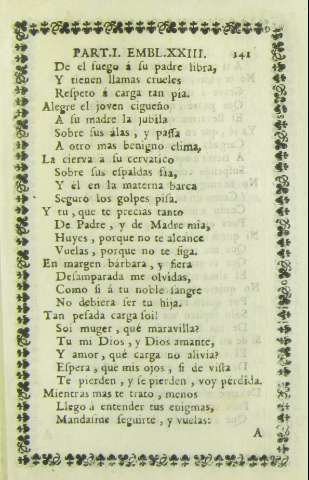 PART.I. EMBL.XXIII. 141
De el fuego á su padre libra,
Y tienen llamas crueles
Respeto á carga tan pia.
Alegre el joven cigueño
A su madre la jubila
Sobre sus álas, y passa
A otro mas benigno clima,
La cierva a su cervatico
Sobre sus espaldas fia,
Y él en la materna barca
Seguro los golpes pisa.
Y tu, que te precias tanto
De Padre, y de Madre mia,
Huyes, porque no te alcance
Vuelas, porque no te siga.
En margen bárbara, y fiera
Desamparada me olvidas,
Como si á tu noble sangre
No debiera ser tu hija.
Tan pesada carga soi!
Soi muger, qué maravilla?
Tu mi Dios, y Dios amante,
Y amor, qué carga no alivia?
Espera, que mis ojos, si de vista
Te pierden, y se pierden, voy perdida.
Mientras mas te trato, menos
Llego a entender tus enigmas,
Mandasme seguirte, y vuelas:
A